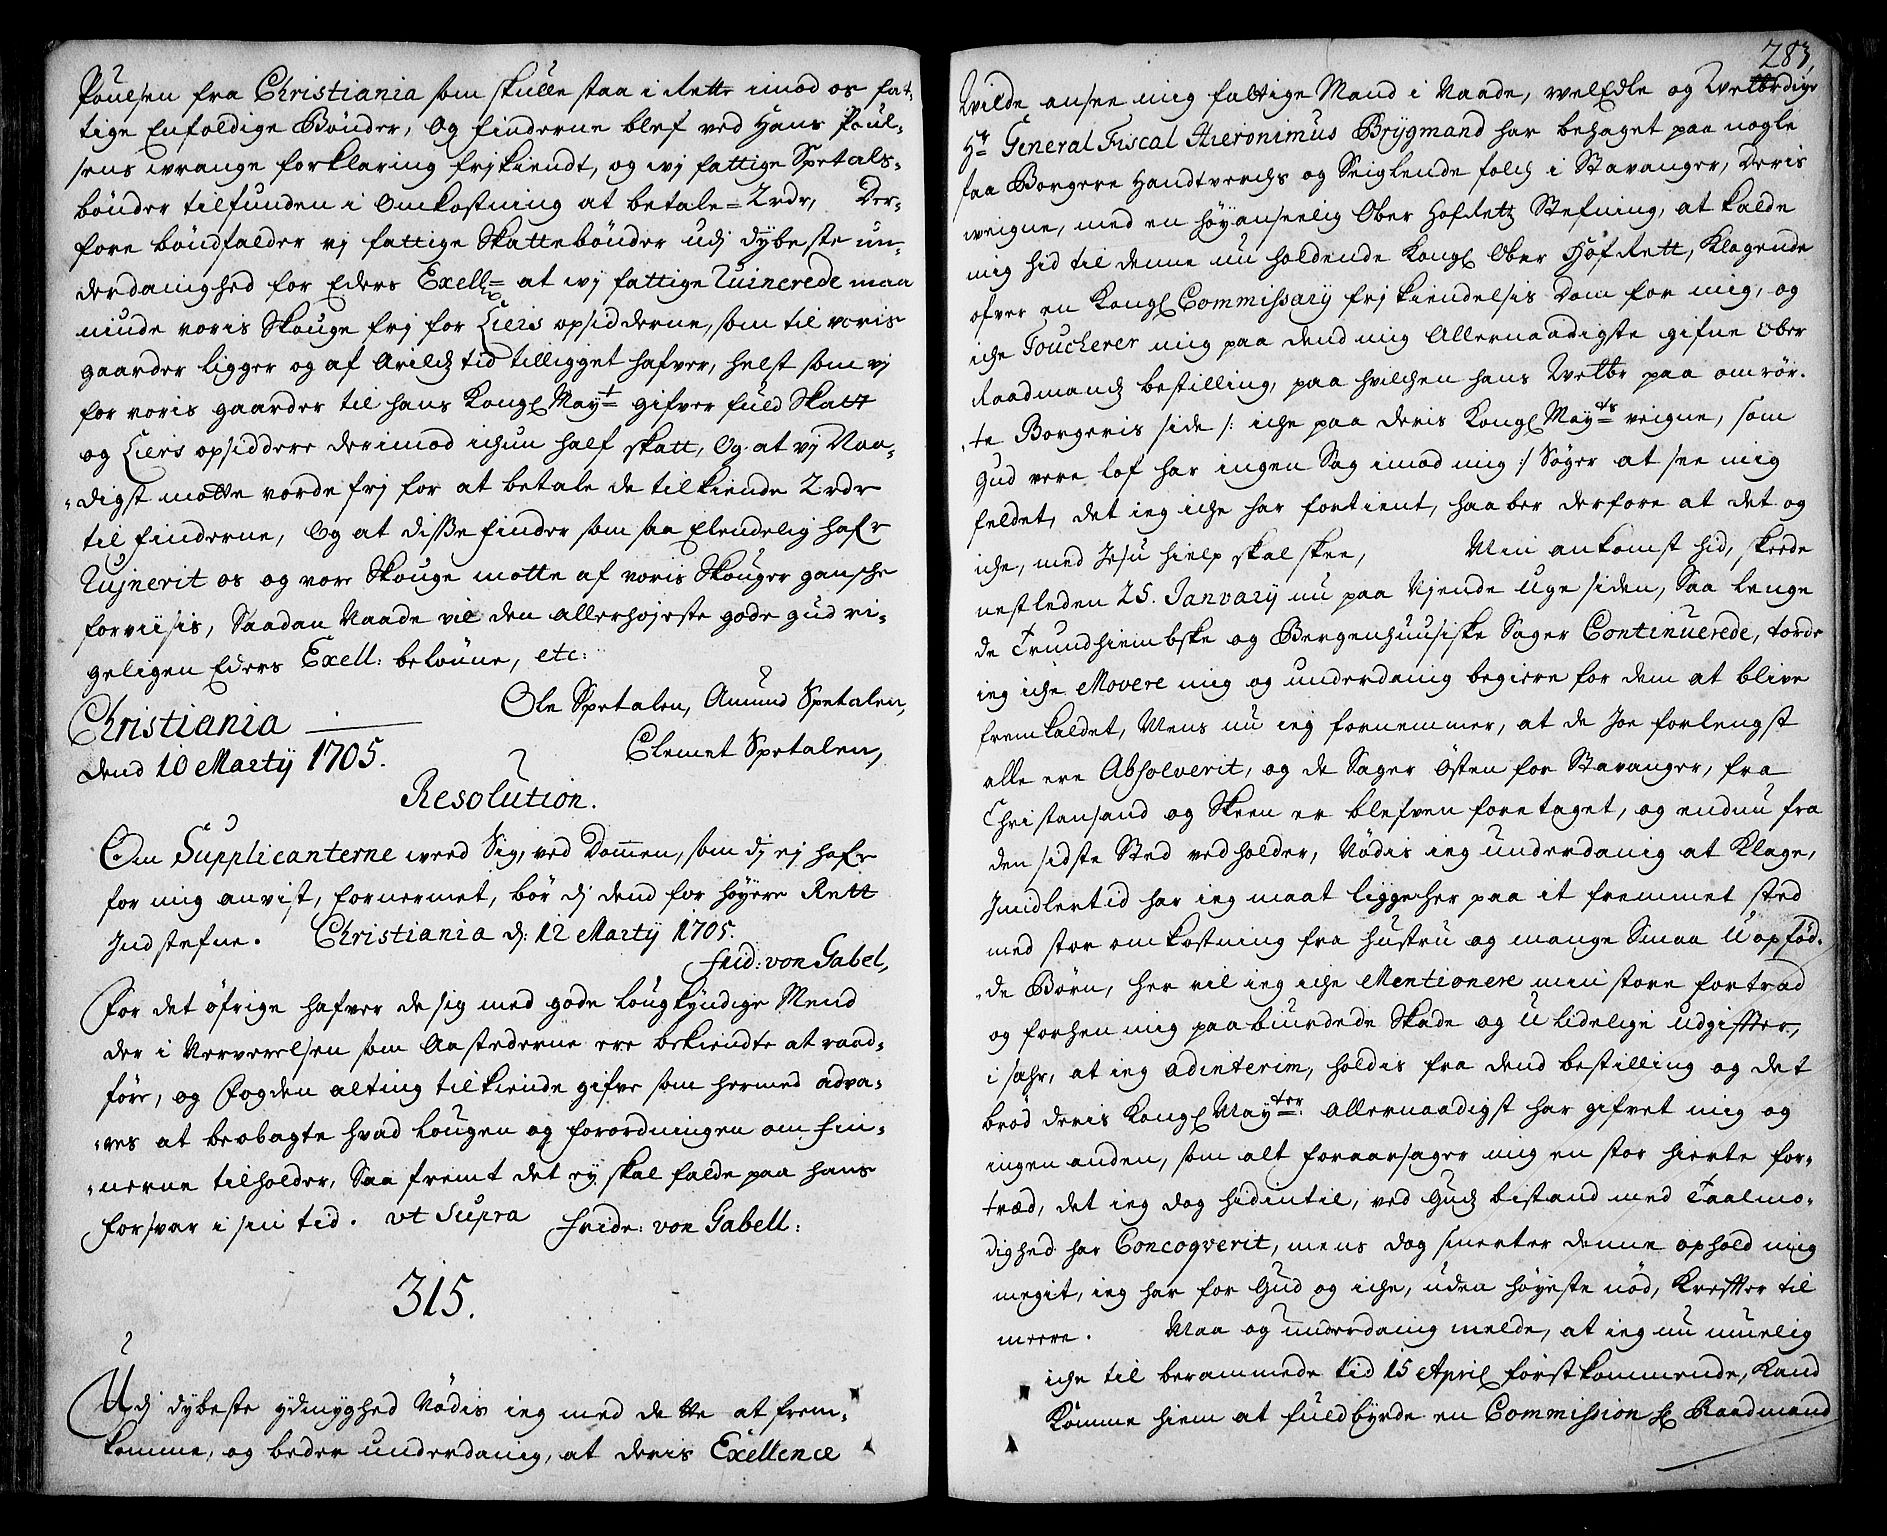 Poulsen fra Christiania som skulle staa i Rette imod os fat-
tige Enfoldige Bønder, Og finderne blef ved Hans Poul-
sens wrange forklaring frj kiendt, og wj fattige Spetals-
bønder tilfunden i Omkostning at betale = 2 rdr, Der-
fore bøndfalder vj fattige Skattebønder udj dybeste un-
derdanighed for Eders Exell= at wj fattige Ruinerede maa
niude voris Skouge frj for Liers opsidderne, som til voris
gaarder ligger og af Arildz tid tilligget hafver, helst som vj
for voris gaarder til hans Kongl May:t gifver fuld Skatt
og Liers opsiddere derimod ichun half skatt, Og at vj Naa-
digst motte vorde frj for at betale de tilkiende 2 rdr
til finderne, Og at disse finder som saa Elendelig hafr
Rujnerit os og vore Skouge motte af voris Skouger gansche
forviisis, Saadan Naade vil den allerhøjeste gode gud ri-
geligen Eders Exell: belønne, etc:
Ole Spetalen, Amund Spetalen,
Christiania
Clemet Spetalen,
dend 10 Martij 1705.
Resolution.
Om Supplicanterne weed Sig, ved Dommen, som dj ej hafr
for mig anvist, fornermet, bør dj dend for høyere Rett
Indstefne. Christiania d: 12 Martij 1705.
Frid: von Gabel,
For det øfrige hafver de sig med gode lougkyndige Mend
der i Nerverelsen som Aastederne ere bekiendte at raad-
føre, og Fogden alting tilkiende gifve som hermed adva-
res at beobagte hvad Lougen og forordningen om Fin-
nerne tilholder, Saa fremt det ey skal falde paa hans
forsvar i sin tid. vt Supra Fride: von Gabell:
315.
Udj dybeste ydmyghed Nødis ieg med dette at frem-
komme, og beder underdanig, at deris Exellence
283,
Wilde ansee mig fattige Mand i Naade, welEdle og Welbrdige
Hr General Fiscal Hieronimus Brygmand har behaget paa nogle
faa Borgere Handtverchs og Seiglende folch i Stavanger, Deris
weigne, med en høyanseelig Ober Hofretz Stefning, at kalde
mig hid til denne nu holdende Kongl Ober Hof Rett, Klagende
ofver en Kongl Commissarij frj kiendelsis Dom for mig, og
iche Toucherer mig paa dend mig Allernaadigste gifne Ober
Raadmandz bestilling, paa hvilchen hans Welbr paa omrør-
te Borgeris side /: iche paa deris Kongl May:ts veigne, som
Gud vere lof har ingen Sag imod mig :/ Søger at see mig
feldet, det ieg iche har fortient, haaber derfore at det og
iche, med Jesu hielp skal skee, Min ankomst hid, skeede
nestleden 25. January nu paa Njende Uge siden, Saa lenge
de Trundhiembske og Bergenhuusiske Sager Continuerede, torde
ieg iche Movere mig og underdanig begiere for dem at blive
fremkaldet, Mens nu ieg fornemmer, at de Joe forlengst
alle ere Absolverit, og de Sager Østen for Stavanger, fra
Christansand og Skeen er blefven foretaget, og endnu fra
den sidste Sted vedholder, Nødis ieg underdanig at Klage,
Imidlertid har ieg maat ligge her paa it fremmet sted
med stor omkostning fra hustru og mange Smaa Uopfød-
de Børn, her vil ieg iche Mentionere min store fortræd
og forhen mig paa biurdede Skade og Ulidelige udgifter,
i sær, at ieg adinterim, holdis fra dend bestilling og det
brød deris Kongl May:ter: allernaadigst har gifvet mig og
ingen anden, som alt foraarsager mig en stor hierte for-
træd, det ieg dog hidintil, ved Gudz bistand med Taalmo-
dighed har Concoqverit, mens dog smerter denne ophold mig
megit, ieg har for Gud og iche, uden høyeste nød, Krefter til
meere. Maa og underdanig melde, at ieg nu muelig
iche til berammede tid 15 April førstkommende, Kand
Komme hiem at fuldbyrde en Commission Raadmand